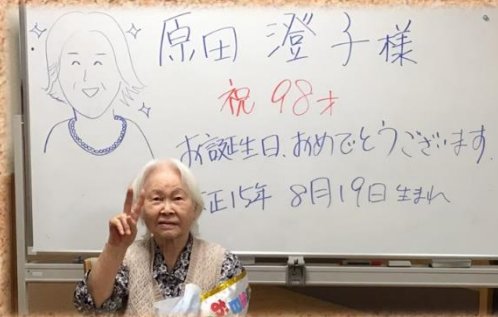 原田 澄子様
祝 98才
お誕生日、おめでとうございます。
正15年 8月19日 生まれ